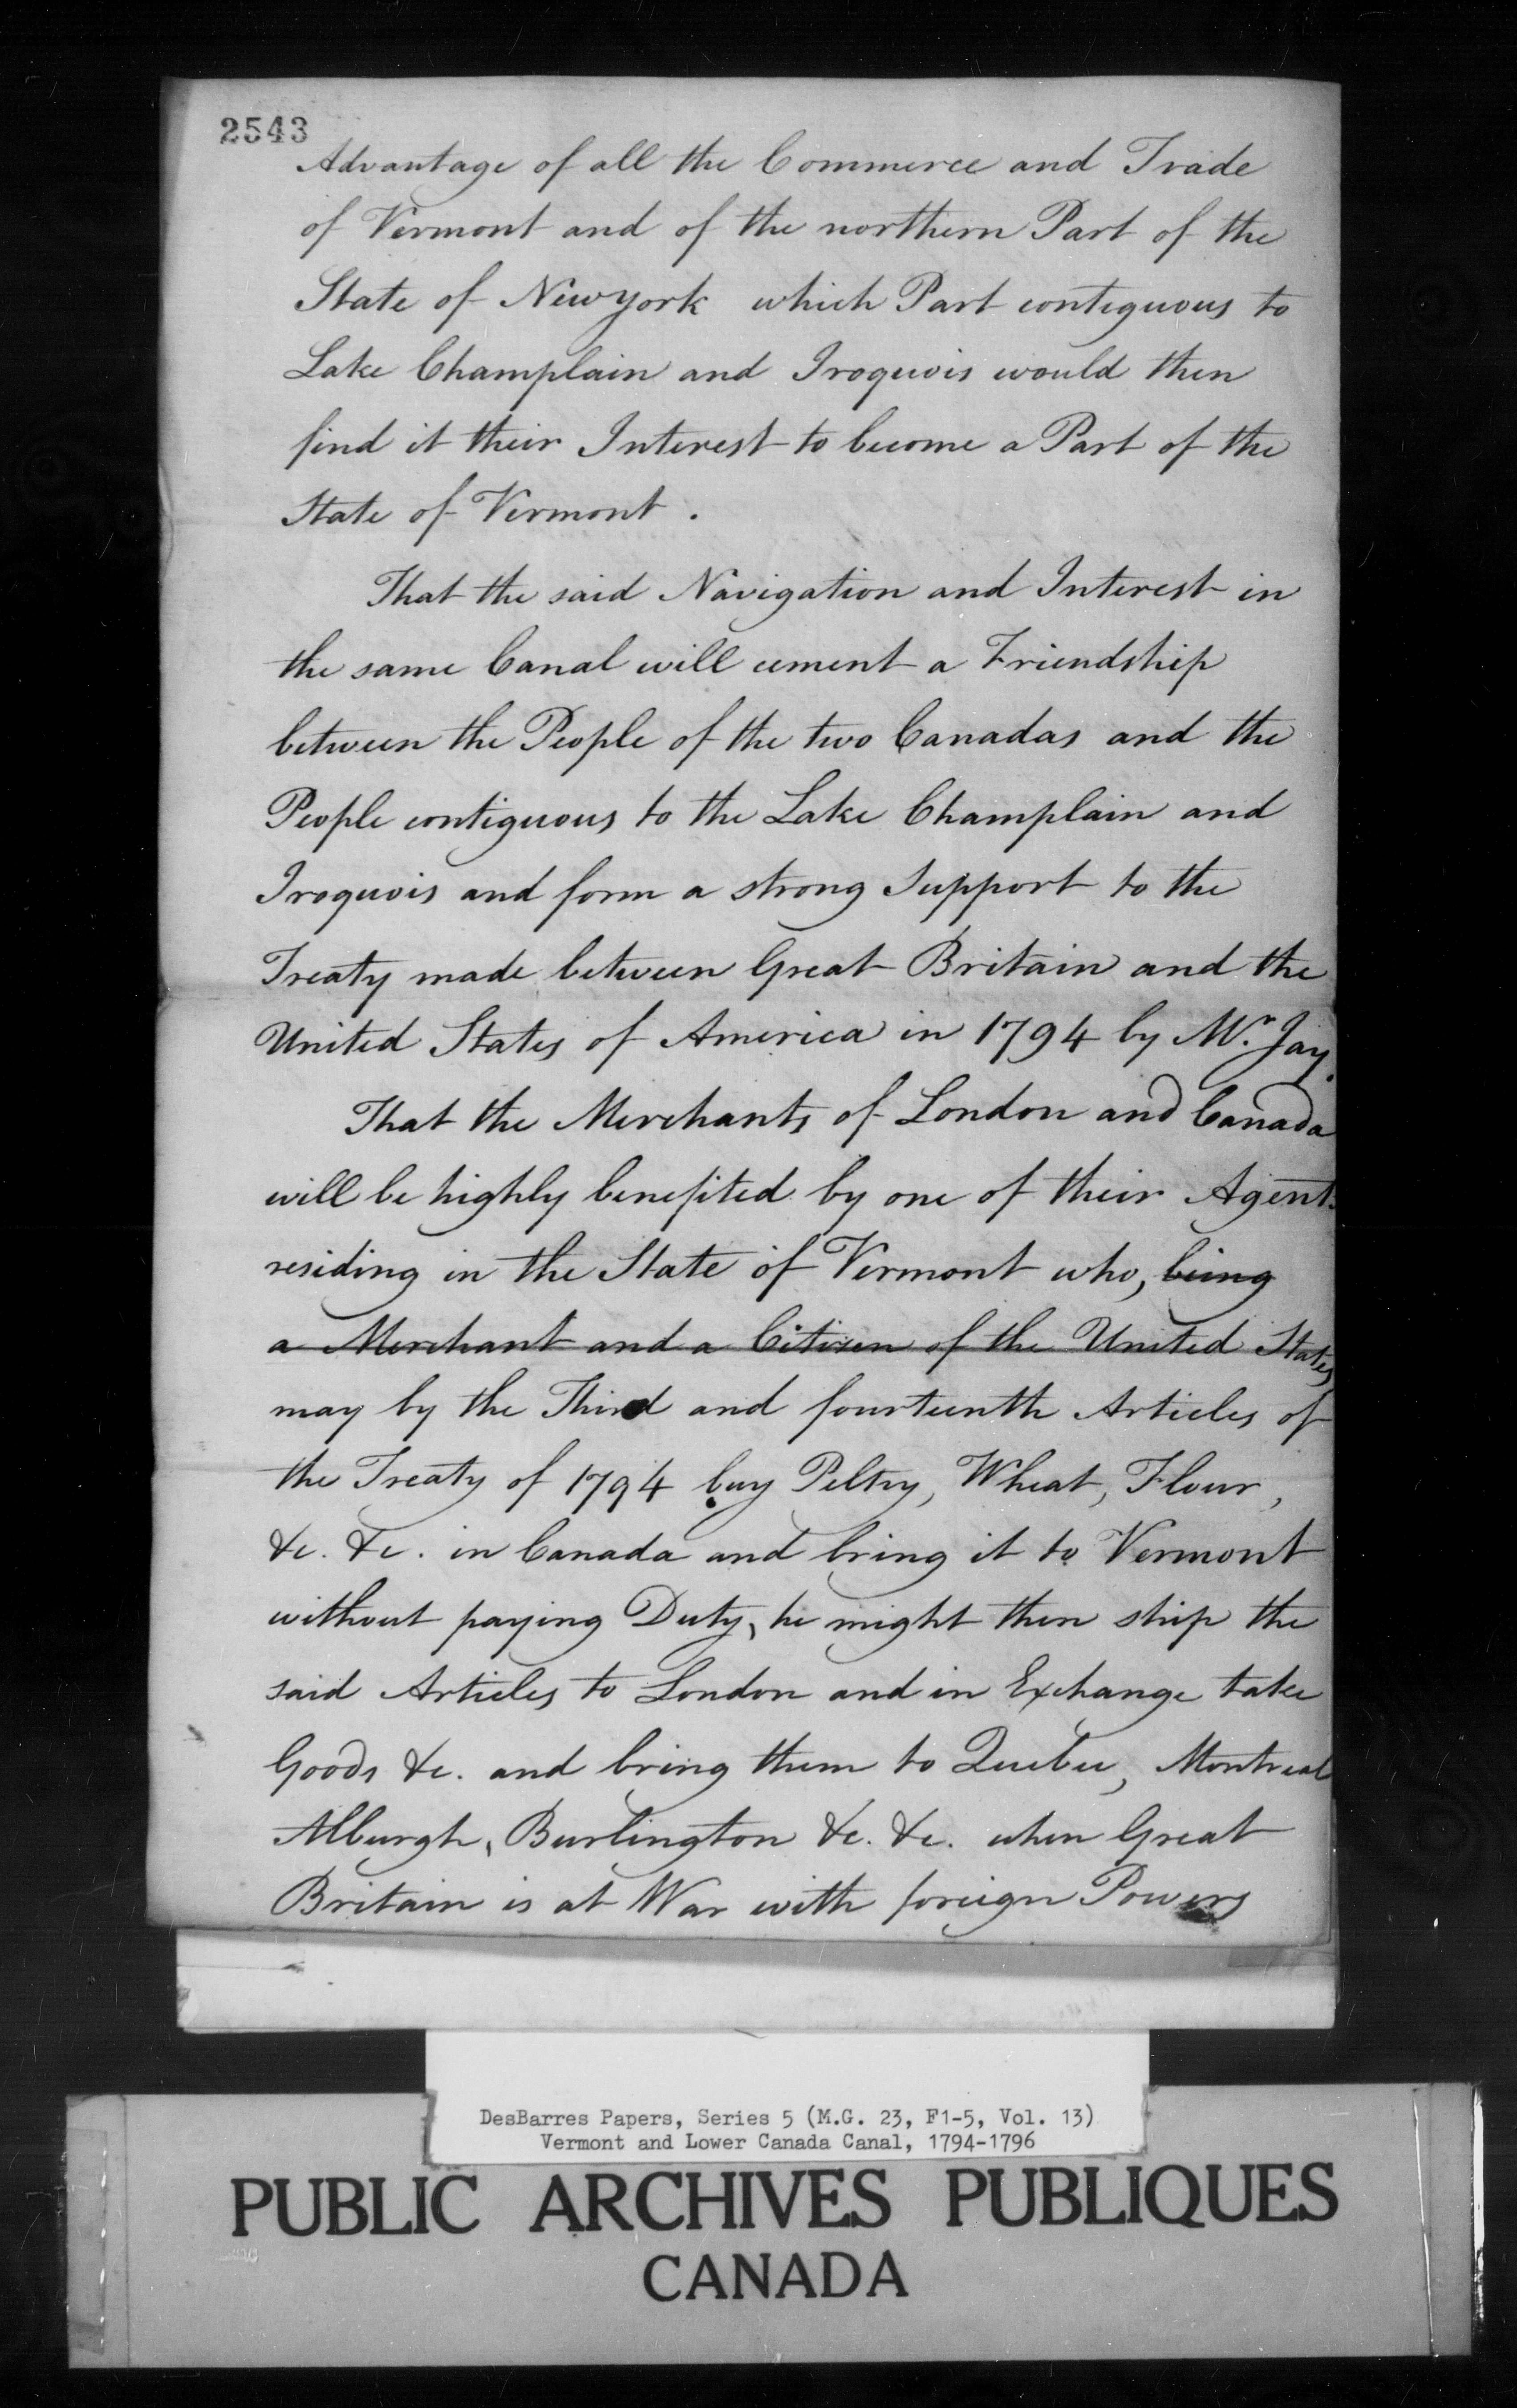 2543
Advantage of all the Commerce and Trade
of Vermont and of the northern Part of the
State of Newyork which Part contiguous to
Lake Champlain and Iroquois would then
find it their Interest to become a Part of the
State of Vermont.
That the said Navigation and Interest in
the same Canal will cement a Friendship
between the People of the two Canadas and the
People contiguous to the Lake Champlain and
Iroquois and form a strong Support to the
Treaty made between Great Britain and the
United States of America in 1794 by Mr. Jay.
That the Merchants of London and Canada
will be highly benefited by one of their Agents
residing in the State of Vermont who, being
a Merchant and a Citizen of the United States,
may by the Third and fourteenth Articles of
the Treaty of 1794 buy Peltry, Wheat, Flour,
&c. &c. in Canada and bring it to Vermont
without paying Duty, he might then ship the
said Articles to London and in Exchange take
Goods &c. and bring them to Quebec, Montreal
Alburgh, Burlington &c. &c. when Great
Britain is at War with foreign Powers
DesBarres Papers, Series 5 (M.G. 23, F1-5, Vol. 13)
Vermont and Lower Canada Canal, 1794-1796
PUBLIC ARCHIVES PUBLIQUES
CANADA